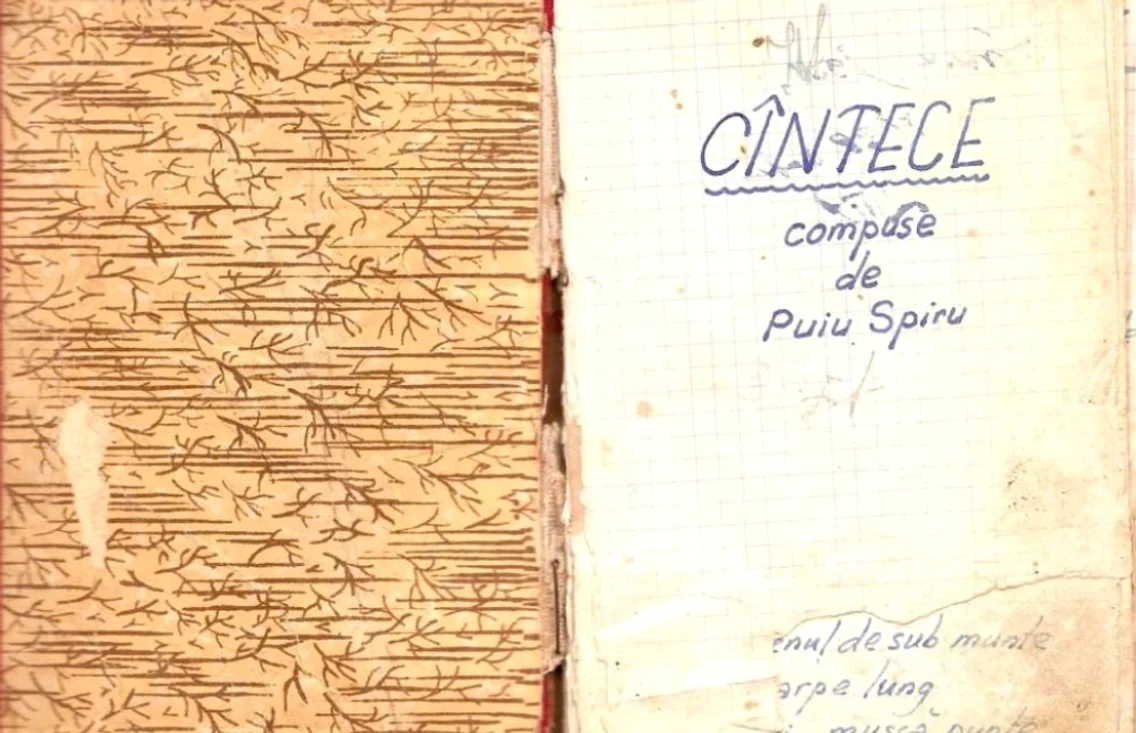 CÎNTECE
compuse
de
Puiu Spiru
enul de sub munte
arpe lung
muscă punte